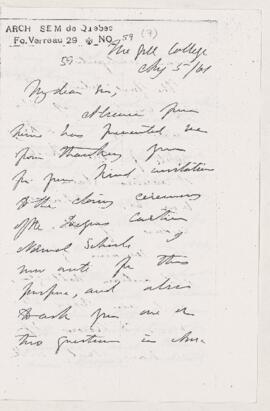 ARCH SEM de Quebec
Fo. Verreau 29 NO 59 (7)
59
McGill College
5/61
My dear Sir,
Absence from
home has prevented me
from thanking you
for your kind invitation
to the closing ceremony
of the Jacques Cartier
Normal School. I
now write for this
purpose, and also
to ask you one or
two questions in